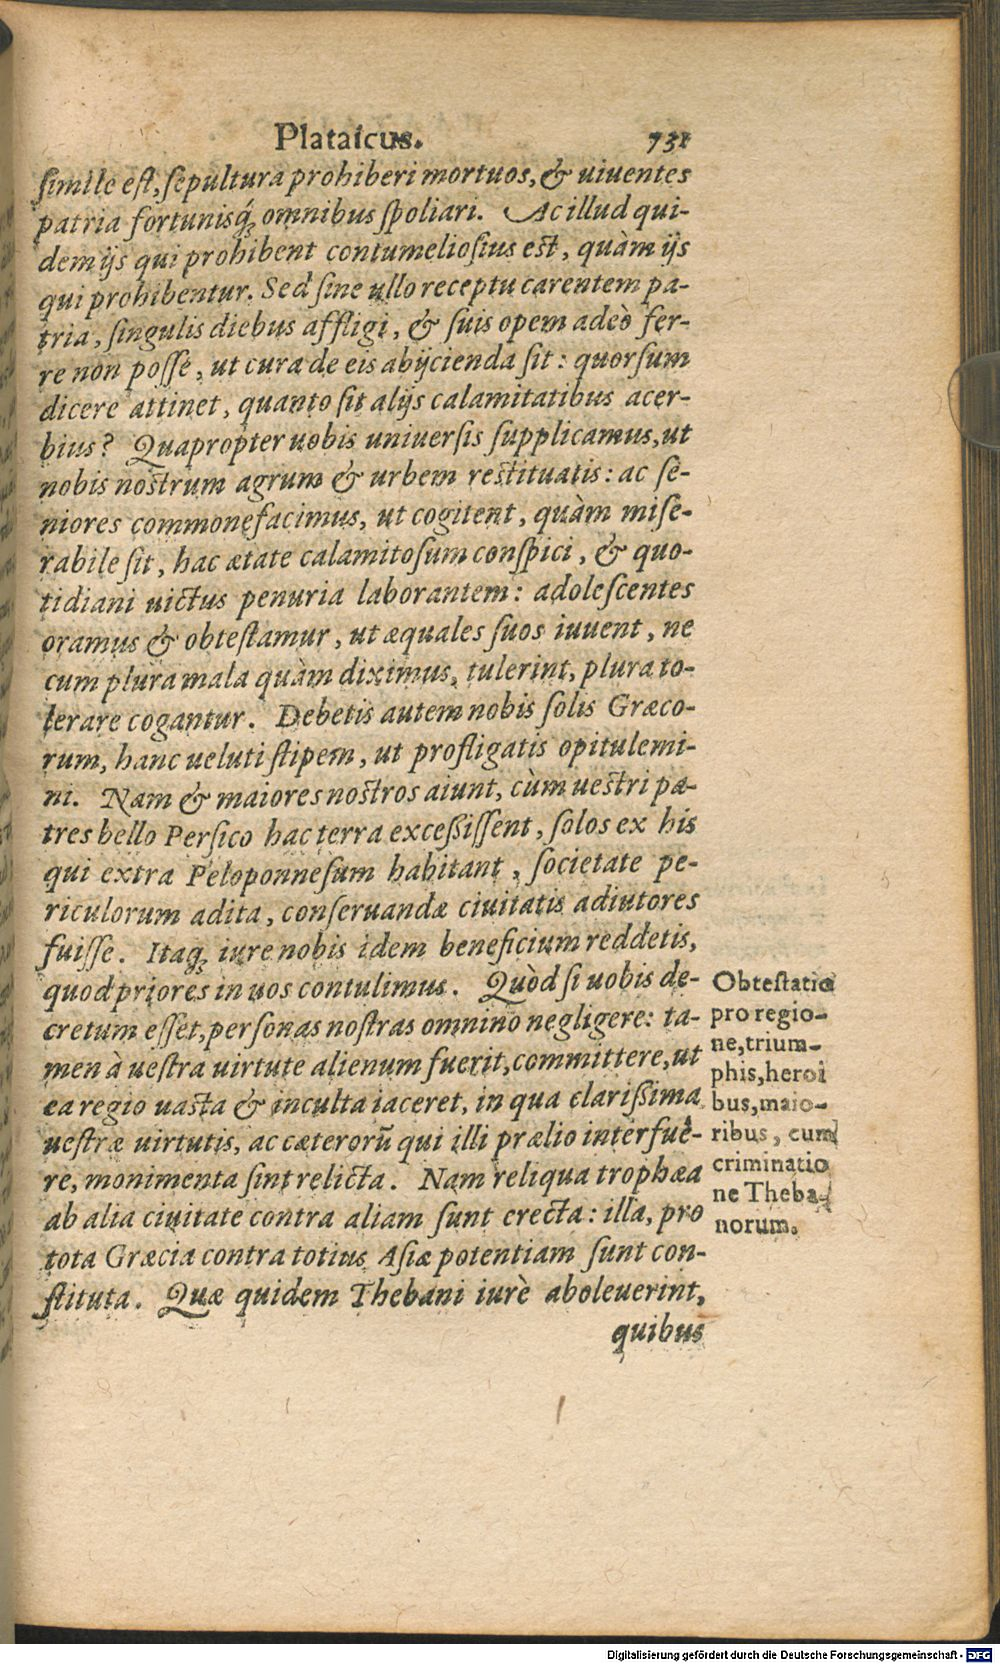 Plataicus. 731
simile est, sepultura prohiberi mortuos, & uiuentes
patria fortunisq́ꝫ omnibus spoliari. Ac illud qui-
dem ijs qui prohibent contumeliosius est, quàm ijs
qui prohibentur. Sed sine ullo receptu carentem pa-
tria, singulis diebus affligi, & suis opem adeò fer-
re non posse, ut cura de eis abijcienda sit: quorsum
dicere attinet, quanto sit alijs calamitatibus acer-
bius? Quapropter uobis uniuersis supplicamus, ut
nobis nostrum agrum & urbem restituatis: ac se-
niores commonefacimus, ut cogitent, quàm mise-
rabile sit, hac ætate calamitosum conspici, & quo-
tidiani uictus penuria laborantem: adolescentes
oramus & obtestamur, ut æquales suos iuuent, ne
cum plura mala quàm diximus, tulerint, plura to-
lerare cogantur. Debetis autem nobis solis Græco-
rum, hanc ueluti stipem, ut profligatis opitulemi-
ni. Nam & maiores nostros aiunt, cùm uestri pa-
tres bello Persico hac terra excessissent, solos ex his
qui extra Peloponnesum habitant, societate pe-
riculorum adita, conseruandæ ciuitatis adiutores
fuisse. Itaqꝫ iure nobis idem beneficium reddetis,
quod priores in uos contulimus. Quòd si uobis de-
cretum esset, personas nostras omnino negligere: ta-
men à uestra uirtute alienum fuerit, committere, ut
ea regio uasta & inculta iaceret, in qua clarissima
uestræ uirtutis, ac cæterorũ qui illi prælio interfue-
re, monimenta sint relicta. Nam reliqua trophæa
ab alia ciuitate contra aliam sunt erecta: illa, pro
tota Græcia contra totius Asiæ potentiam sunt con-
stituta. Quæ quidem Thebani iurè aboleuerint,
quibus
Obtestatio
pro regio-
ne, trium-
phis, heroi
bus, maio-
ribus, cum
criminatio
ne Theba-
norum.
Digitalisierung gefördert durch die Deutsche Forschungsgemeinschaft - DFG